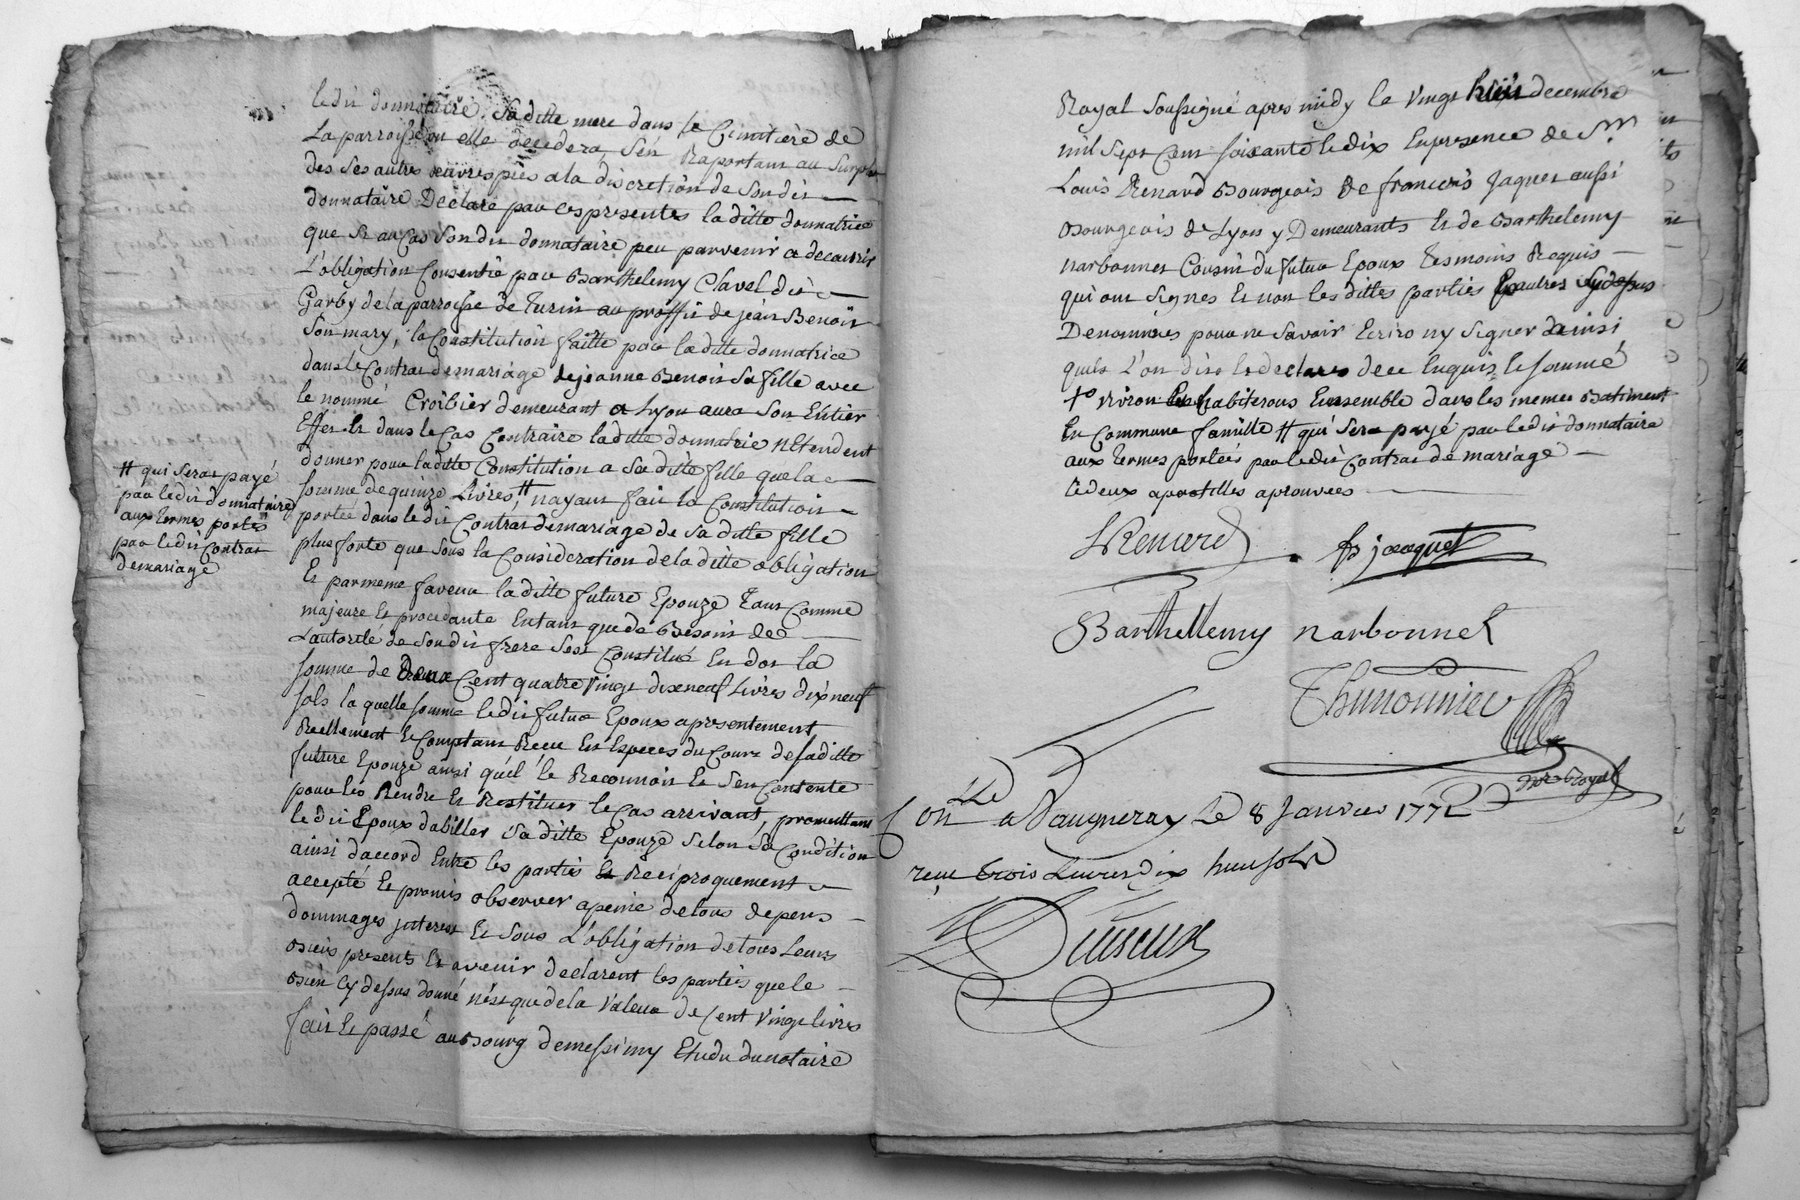 ledit donnataire sa ditte mere dans le Cimitière de
La parroisse ou elle decedera, s'en Raportant au Surplus
des Ses autre œuvres pies a la discretion de Son dit
donnataire Declare par ces presentes la ditte donnatrice
que Si au Cas Son dit donnataire peu parvenir a decouvrir
L'obligation Consentie par Barthelemy Clavel dit
Garby de la parroisse de Turin au proffit de jean Benoit
Son mary, la Constitution faitte par la ditte donnatrice
dans le Contrat de mariage de jeanne Benoit Sa fille avec
le nommé Croibier demeurant a Lyon aura Son Entier
Effet Et dans le Cas Contraire la ditte donnatrice n'Etendent
donner pour la ditte Constitution a Sa ditte fille que la
Somme de quinze Livres, # n'ayant fait la Constitution
portée dans le dit Contrat de mariage de Sa ditte fille
plus forte que Sous la Consideration de la ditte obligation
# qui Serat payé
par le dit donnataire
aux termes portés
par le dit Contrat
de mariage
Et par meme faveur la ditte future Epouze Tant Comme
majeure Et procedante Entant que de Besoin de
L'autorité de Son dit frere Sest Constitué En dot la
Somme de Deux Cent quatre Vingt dixneuf Livres dixneuf
Sols la quelle Somme le dit futur Epoux a presentement
Reellement Et Comptant Reçu En Especes du Cours de sa ditte
future Epouze ainsi qu'el le Reconnoit Et S'en Contente
pour les Rendre Et Restituer le Cas arrivant, promettant
le dit Epoux d'abiller Sa ditte Epouze Selon Sa Condition
ainsi d'accord Entre les parties Et Reciproquement
accepté Et promis observer a peine de tous depens
dommages jnterest Et Sous L'obligation de tous Leurs
Bieis presents Et avenir declarent les parties que le
Bien Cy dessus donné n'est que de la Valeur de Cent Vingt livres
fait Et passé au Bourg de messimy Etude du notaire
Royal Soussigné apres midy le Vingt huit decembre
mil Sept Cent Soixante Et dix En presence de Srs
Louis Renard Bourgeois Et de francois Jaquet aussi
Bourgeois de Lyon y Demeurants Et de Barthelemy
narbonnet Cousin du futur Epoux Tesmoins Requis
qui ont Signes Et non les dittes parties Et autres Cy dessus
Denommées pour ne Savoir Ecrire ny Signer dainsi
quils L'on dire Et declares dece Enquis Et Sommé
vivron Et habiterons Ensemble dans les memes Batiment
En Commune famille # qui Sera payé par le dit donnataire
aux termes portées par le dit Contrat de mariage
Et deux apostilles aprouvées
LRenard fs jacquet
Barthellemy narbonnet
Thimonnier
nore Royal
Conlle a Vaugneray Le 8 Janvier 1771
reçu trois Livres dix huit Sols